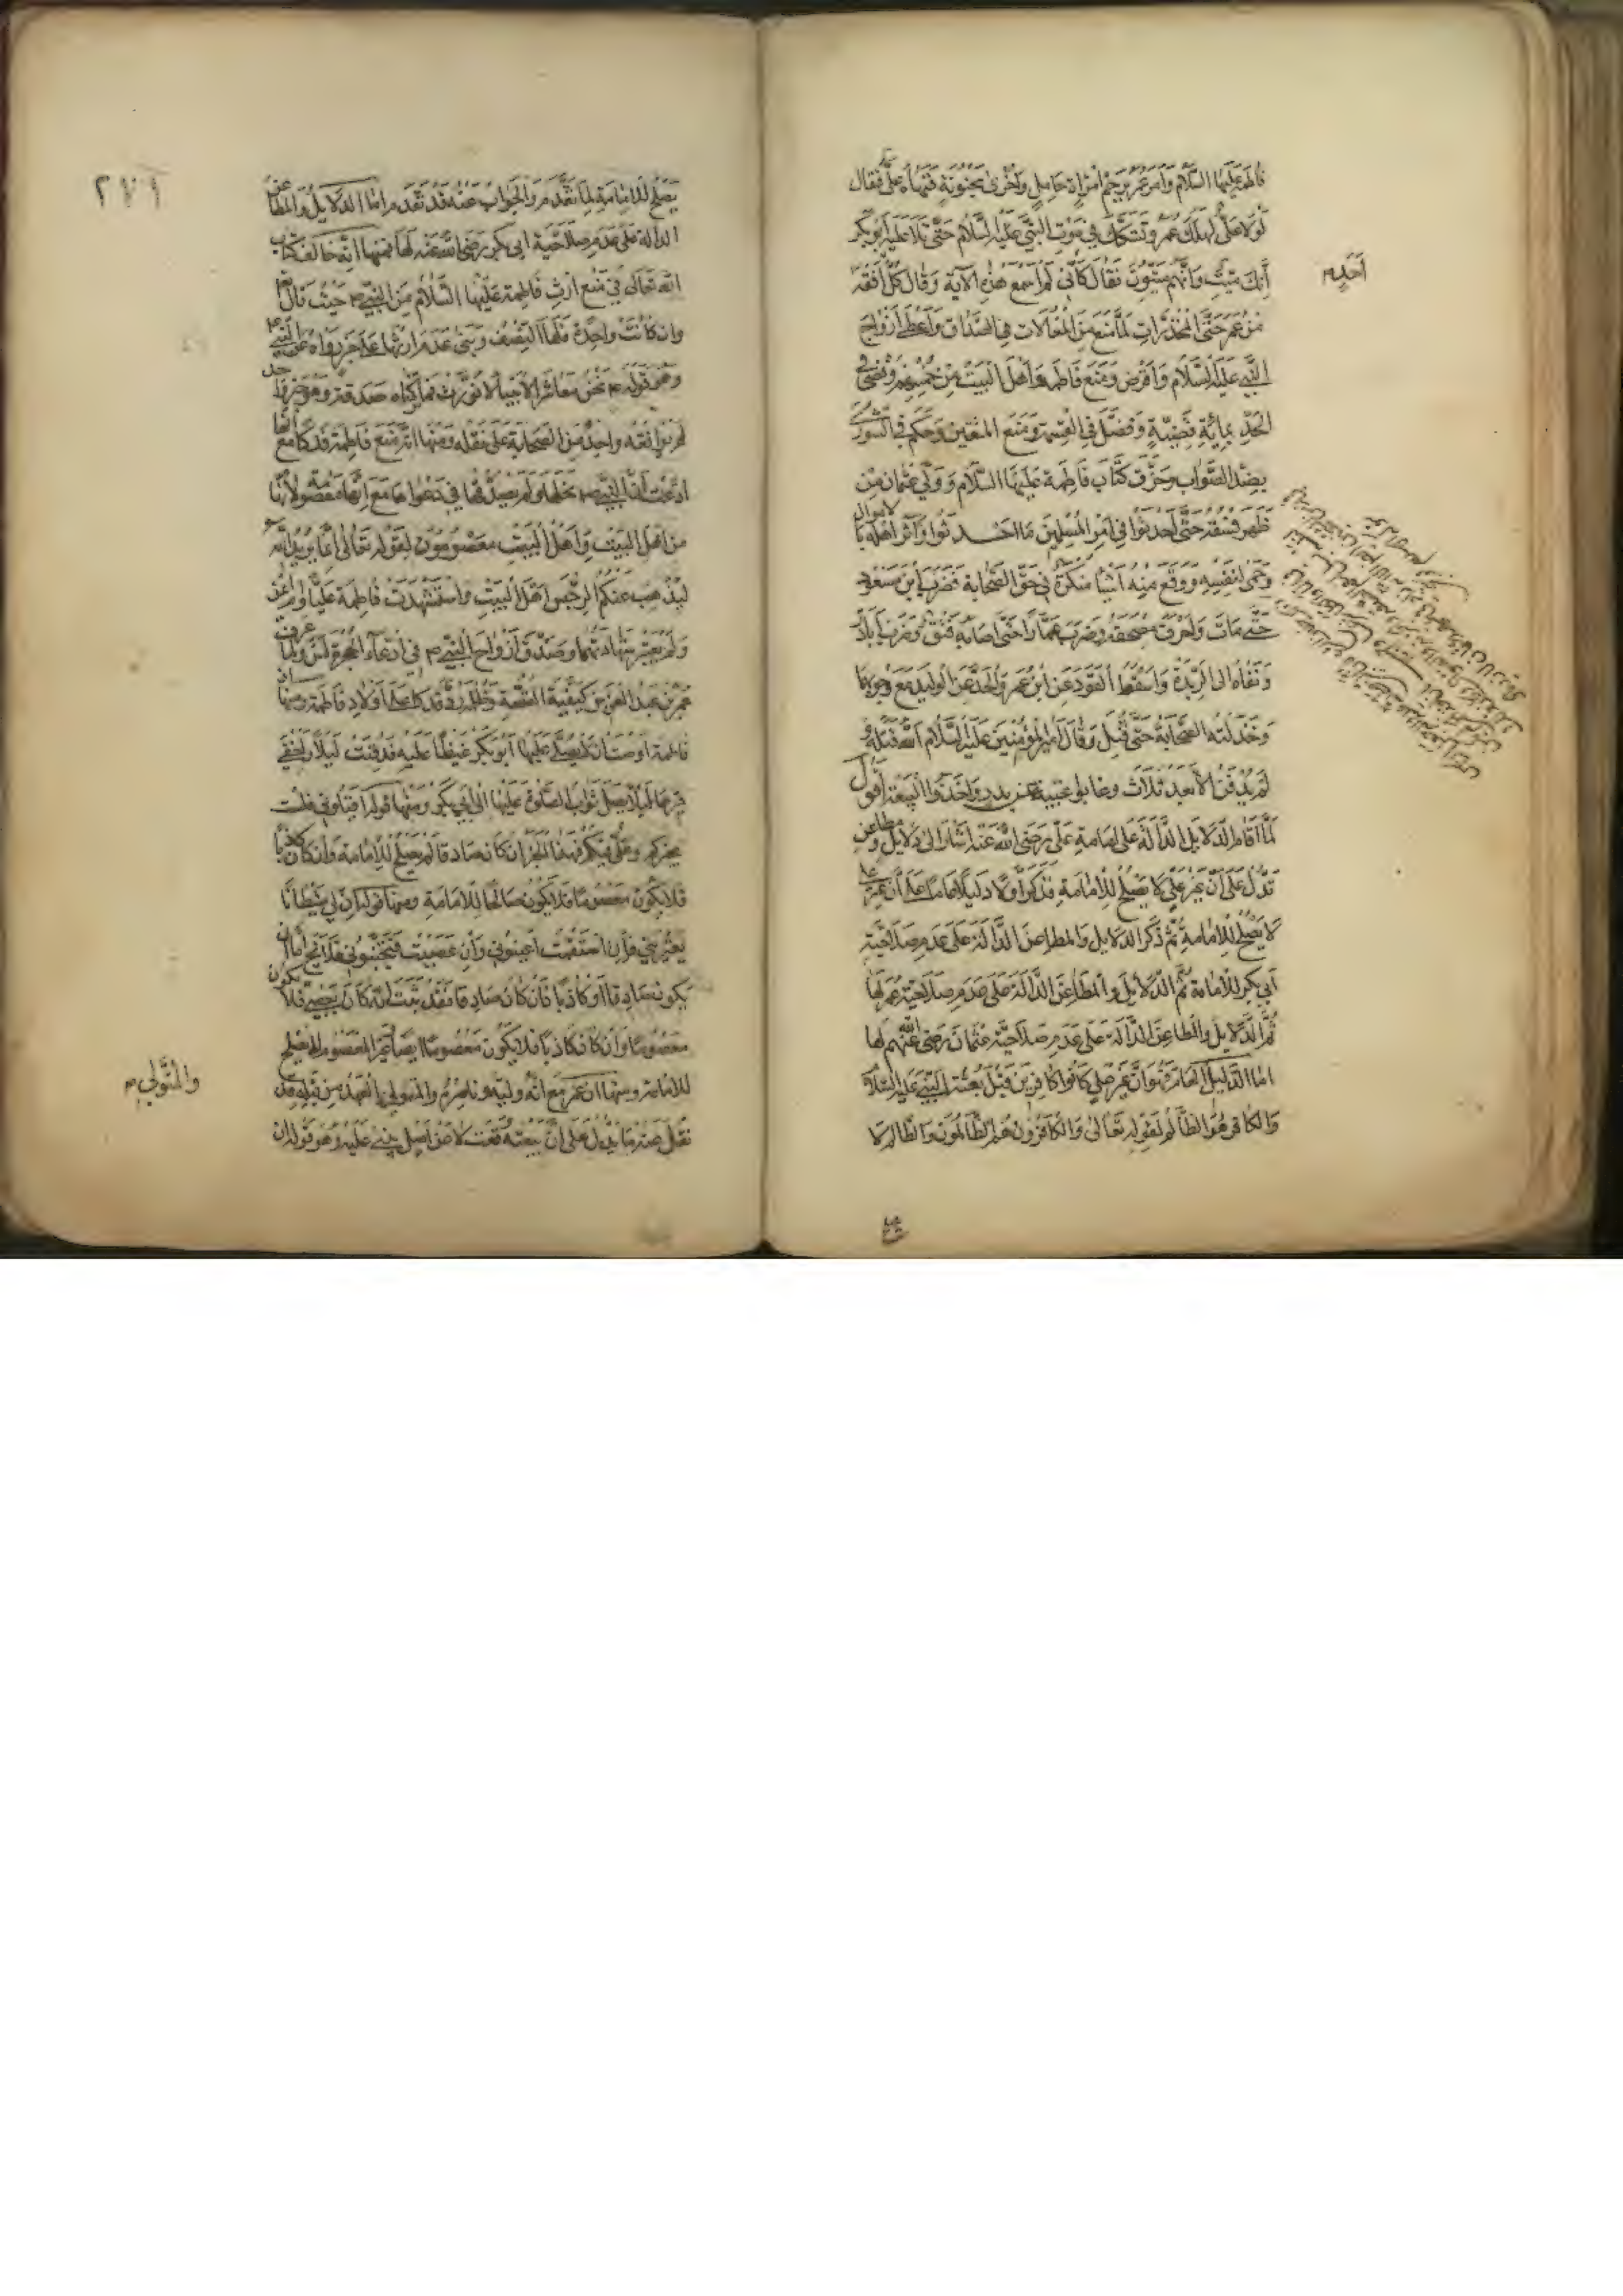 فاطمة عليها السلام وأمر عمر برجم امرأة حامل وأخرى مجنونة فنهاه علي فقال
لولا علي لهلك عمر وتشكك في موت النبي عليه السلام حتى تلا عليه أبو بكر
إنك ميت وإنهم ميتون فقال كأني لم أسمع هذه الآية وقال كل أفقه
من عمر حتى المخدرات لما منع من المغالات في الصداق وأعطى أزواج
النبي عليه السلام وأقرض ومنع فاطمة وأهل البيت من خمسهم وقضى في
الحد بمائة قضية وفضل في القسمة ومنع المتعتين وحكم في الشورى
بضد الصواب وخرق كتاب فاطمة عليها السلام وولى عثمان من
ظهر فسقه حتى أحدثوا في أمر المسلمين ما أحدثوا وآثر أهله بالأموال
وحمى لنفسه ووقع منه أشياء منكرة في حق الصحابة فضرب ابن مسعود
حتى مات وأحرق مصحفه وضرب عمارا حتى أصابه فتق وضرب أبا ذر
ونفاه إلى الربذة وأسقط القود عن ابن عمر والحد عن الوليد مع وجوبهما
وخذلته الصحابة حتى قتل وقال أمير المؤمنين عليه السلام الله قتله و
لم يدفن إلا بعد ثلاث وعابوا غيبته عن بدر وأحد والبيعة أقول
لما أقام الدلايل الدالة على إمامة علي رضي الله عنه أشار إلى دلايل ومطاعن
تدل على أن غير علي لا يصلح للإمامة فذكر أولا دليلا عاما على أن غير علي
لا يصلح للإمامة ثم ذكر الدلايل والمطاعن الدالة على عدم صلاحية
أبي بكر للإمامة ثم الدلايل والمطاعن الدالة على عدم صلاحية عمر لها
ثم الدلايل والمطاعن الدالة على عدم صلاحية عثمان رضي الله عنهم لها
اما الدليل العام فهو أن غير علي كانوا كافرين قبل بعثة النبي عليه السلام
والكافر هو الظالم لقوله تعالى والكافرون هم الظالمون والظالم لا
٢٧١
يصلح للإمامة لما تقدم والجواب عنه قد تقدم واما الدلايل والمطاعن
الدالة على عدم صلاحية ابي بكر رضي الله عنه لها فمنها انه خالف كتاب
الله تعالى في منع إرث فاطمة عليها السلام من النبي حيث قال
وان كانت واحدة فلها النصف وبنى عدم ارثها على خبر رواه عن النبي
وهو قوله نحن معاشر الأنبياء لا نورث فما تركناه صدقة وهو خبر واحد
لم يوافقه واحد من الصحابة على نقله ومنها انه منع فاطمة فدكا مع أنها
ادعت أن النبي نحلها ولم يصدقها في دعواها مع انها معصومة لأنها
من اهل البيت وأهل البيت معصومون لقوله تعالى إنما يريد الله
ليذهب عنكم الرجس أهل البيت واستشهدت فاطمة عليا وام أيمن
ولم يعتبر شهادتهما وصدق أزواج النبي في ادعاء الحجرة لهن ولما عرف
عمر بن عبد العزيز كيفية القصة رد فدكا على أولاد فاطمة ومنها ان
فاطمة اوصت ان لا يصلي عليها أبو بكر غيظا عليه فدفنت ليلا وأخفي
قبرها ليلا يصل ثواب الصلوة عليها الى ابي بكر ومنها قوله اقيلوني فلست
بخيركم وعلي فيكم فهذا الخبر ان كان صادقا لم يصلح للإمامة وان كان كاذبا
فلا يكون معصوما فلا يكون صالحا للإمامة ومنها قوله ان لي شيطانا
يعتريني فإن استقمت اعينوني وان عصيت فتجنبوني فلا يخ اما ان
يكون صادقا أو كاذبا فان كان صادقا فقد ثبت انه كان يعصي فلا يكون
معصوما وان كان كاذبا فلا يكون معصوما ايضا وغير المعصوم لا يصلح
للإمامة ومنها ان عمر مع انه وليه وناصره والمتولي العهد من قبله قد
نقل عنه ما يدل على أن بيعته وقعت لا عن أصل يبنى عليه وهو قوله ان
والمتولي